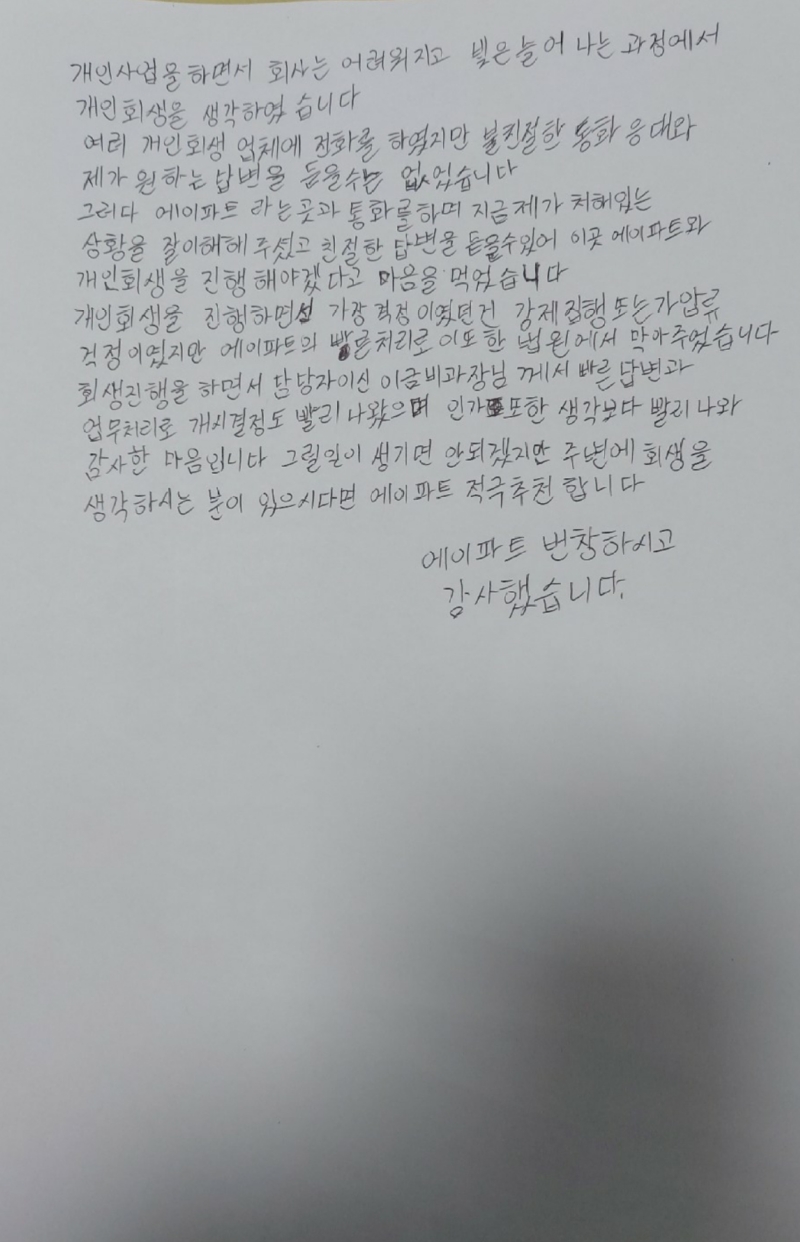 개인사업을하면서 회사는 어려워지고 빚은늘어 나는 과정에서
개인회생을 생각하였습니다
여러 개인회생 업체에 전화를 하였지만 불친절한 통화 응대와
제가 원하는 답변을 들을수는 없었습니다
그러다 에이파트 라는곳과 통화를하며 지금제가 처해있는
상황을 잘이해해 주셨고 친절한 답변을 듣을수있어 이곳 에이파트와
개인회생을 진행해야겠다고 마음을 먹었습니다
개인회생을 진행하면서 가장 걱정이였던건 강제집행 또는가압류
걱정이였지만 에이파트의 빠른처리로 이또한 법원에서 막아주었습니다
회생진행을 하면서 담당자이신 이금비과장님 께서 빠른 답변과
업무처리로 개시결정도 빨리 나왔으며 인가또한 생각보다 빨리 나와
감사한 마음입니다 그럴일이 생기면 안되겠지만 주변에 회생을
생각하시는 분이 있으시다면 에이파트 적극추천 합니다
에이파트 번창하시고
감사했습니다.